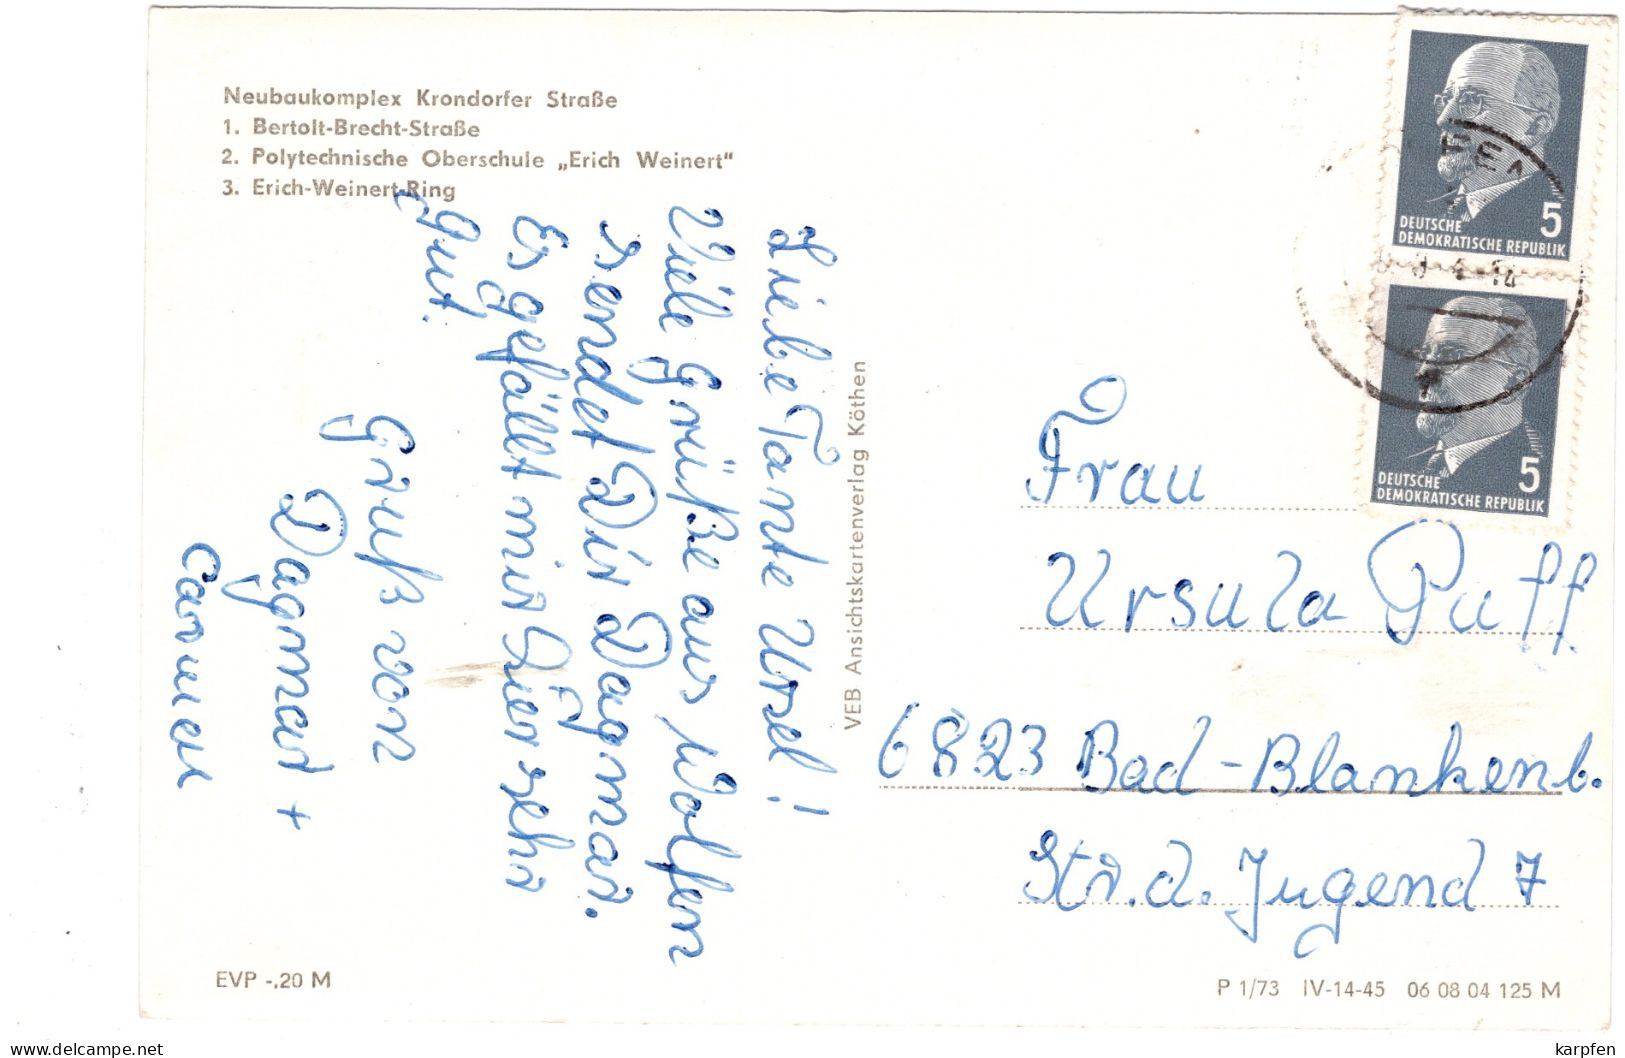 Neubaukomplex Krondorfer Straße
1. Bertolt-Brecht-Straße
2. Polytechnische Oberschule „Erich Weinert“
3. Erich-Weinert-Ring
Liebe Tante Ursel!
Viele Grüße aus Wolfen
sendet Dir Dagmar.
Es gefällt mir hier sehr
gut.
Gruß von
Dagmar +
Carmen
VEB Ansichtskartenverlag Köthen
DEUTSCHE
DEMOKRATISCHE REPUBLIK
5
DEUTSCHE
DEMOKRATISCHE REPUBLIK
5
Frau
Ursula Puff
6823 Bad-Blankenb.
Str. d. Jugend 7
EVP -.20 M
P 1/73 IV-14-45 06 08 04 125 M
www.delcampe.net
karpfen